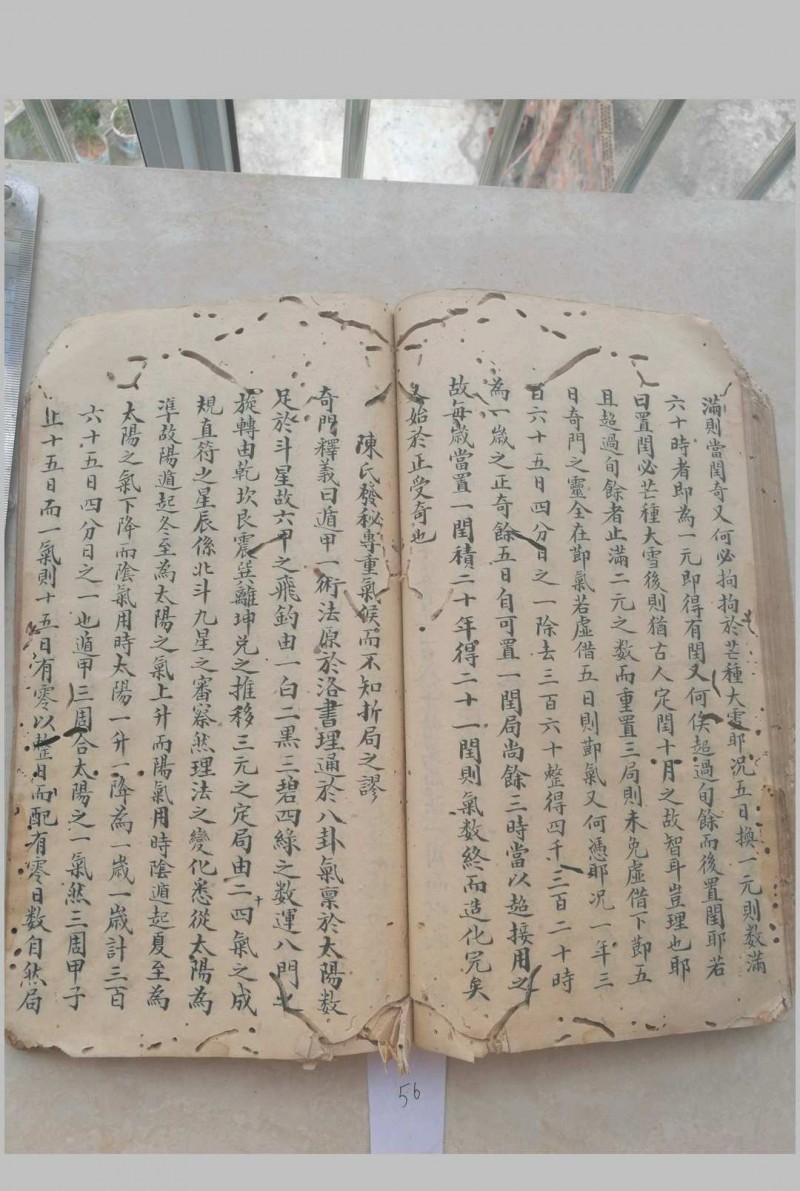 滿則當閏奇又何必拘拘於芒種大雪耶況五日換一元則數滿
六十時者即為一元即得有閏又何俟超過旬餘而後置閏耶若
曰置閏必芒種大雪後則猶古人定閏十月之故智耳豈理也耶
且超過旬餘者止滿二元之數而重置三局則未免虛借下節五
日奇門之靈全在節氣若虛借五日則節氣又何憑耶況一年三
百六十五日四分日之一除去三百六十整得四千三百二十時
為一歲之正奇餘五日自可置一閏局尚餘三時當以超接用之
故每歲當置一閏積二十年得二十一閏則氣數終而造化完矣
始於正受奇也
陳氏發秘專重氣候而不知折局之謬
奇門釋義曰遁甲一術法原於洛書理通於八卦氣禀於太陽數
足於斗星故六甲之飛鈞由一白二黑三碧四綠之數運八門之
旋轉由乾坎艮震巽離坤兌之推移三元之定局由二十四氣之成
規直符之星辰係北斗九星之審察然理法之變化悉從太陽為
準故陽遁起冬至為太陽之氣上升而陽氣用時陰遁起夏至為
太陽之氣下降而陰氣用時太陽一升一降為一歲一歲計三百
六十五日四分日之一也遁甲三周合太陽之一氣然三周甲子
止十五日而一氣則十五日有零以整日而配有零日數自然局
56